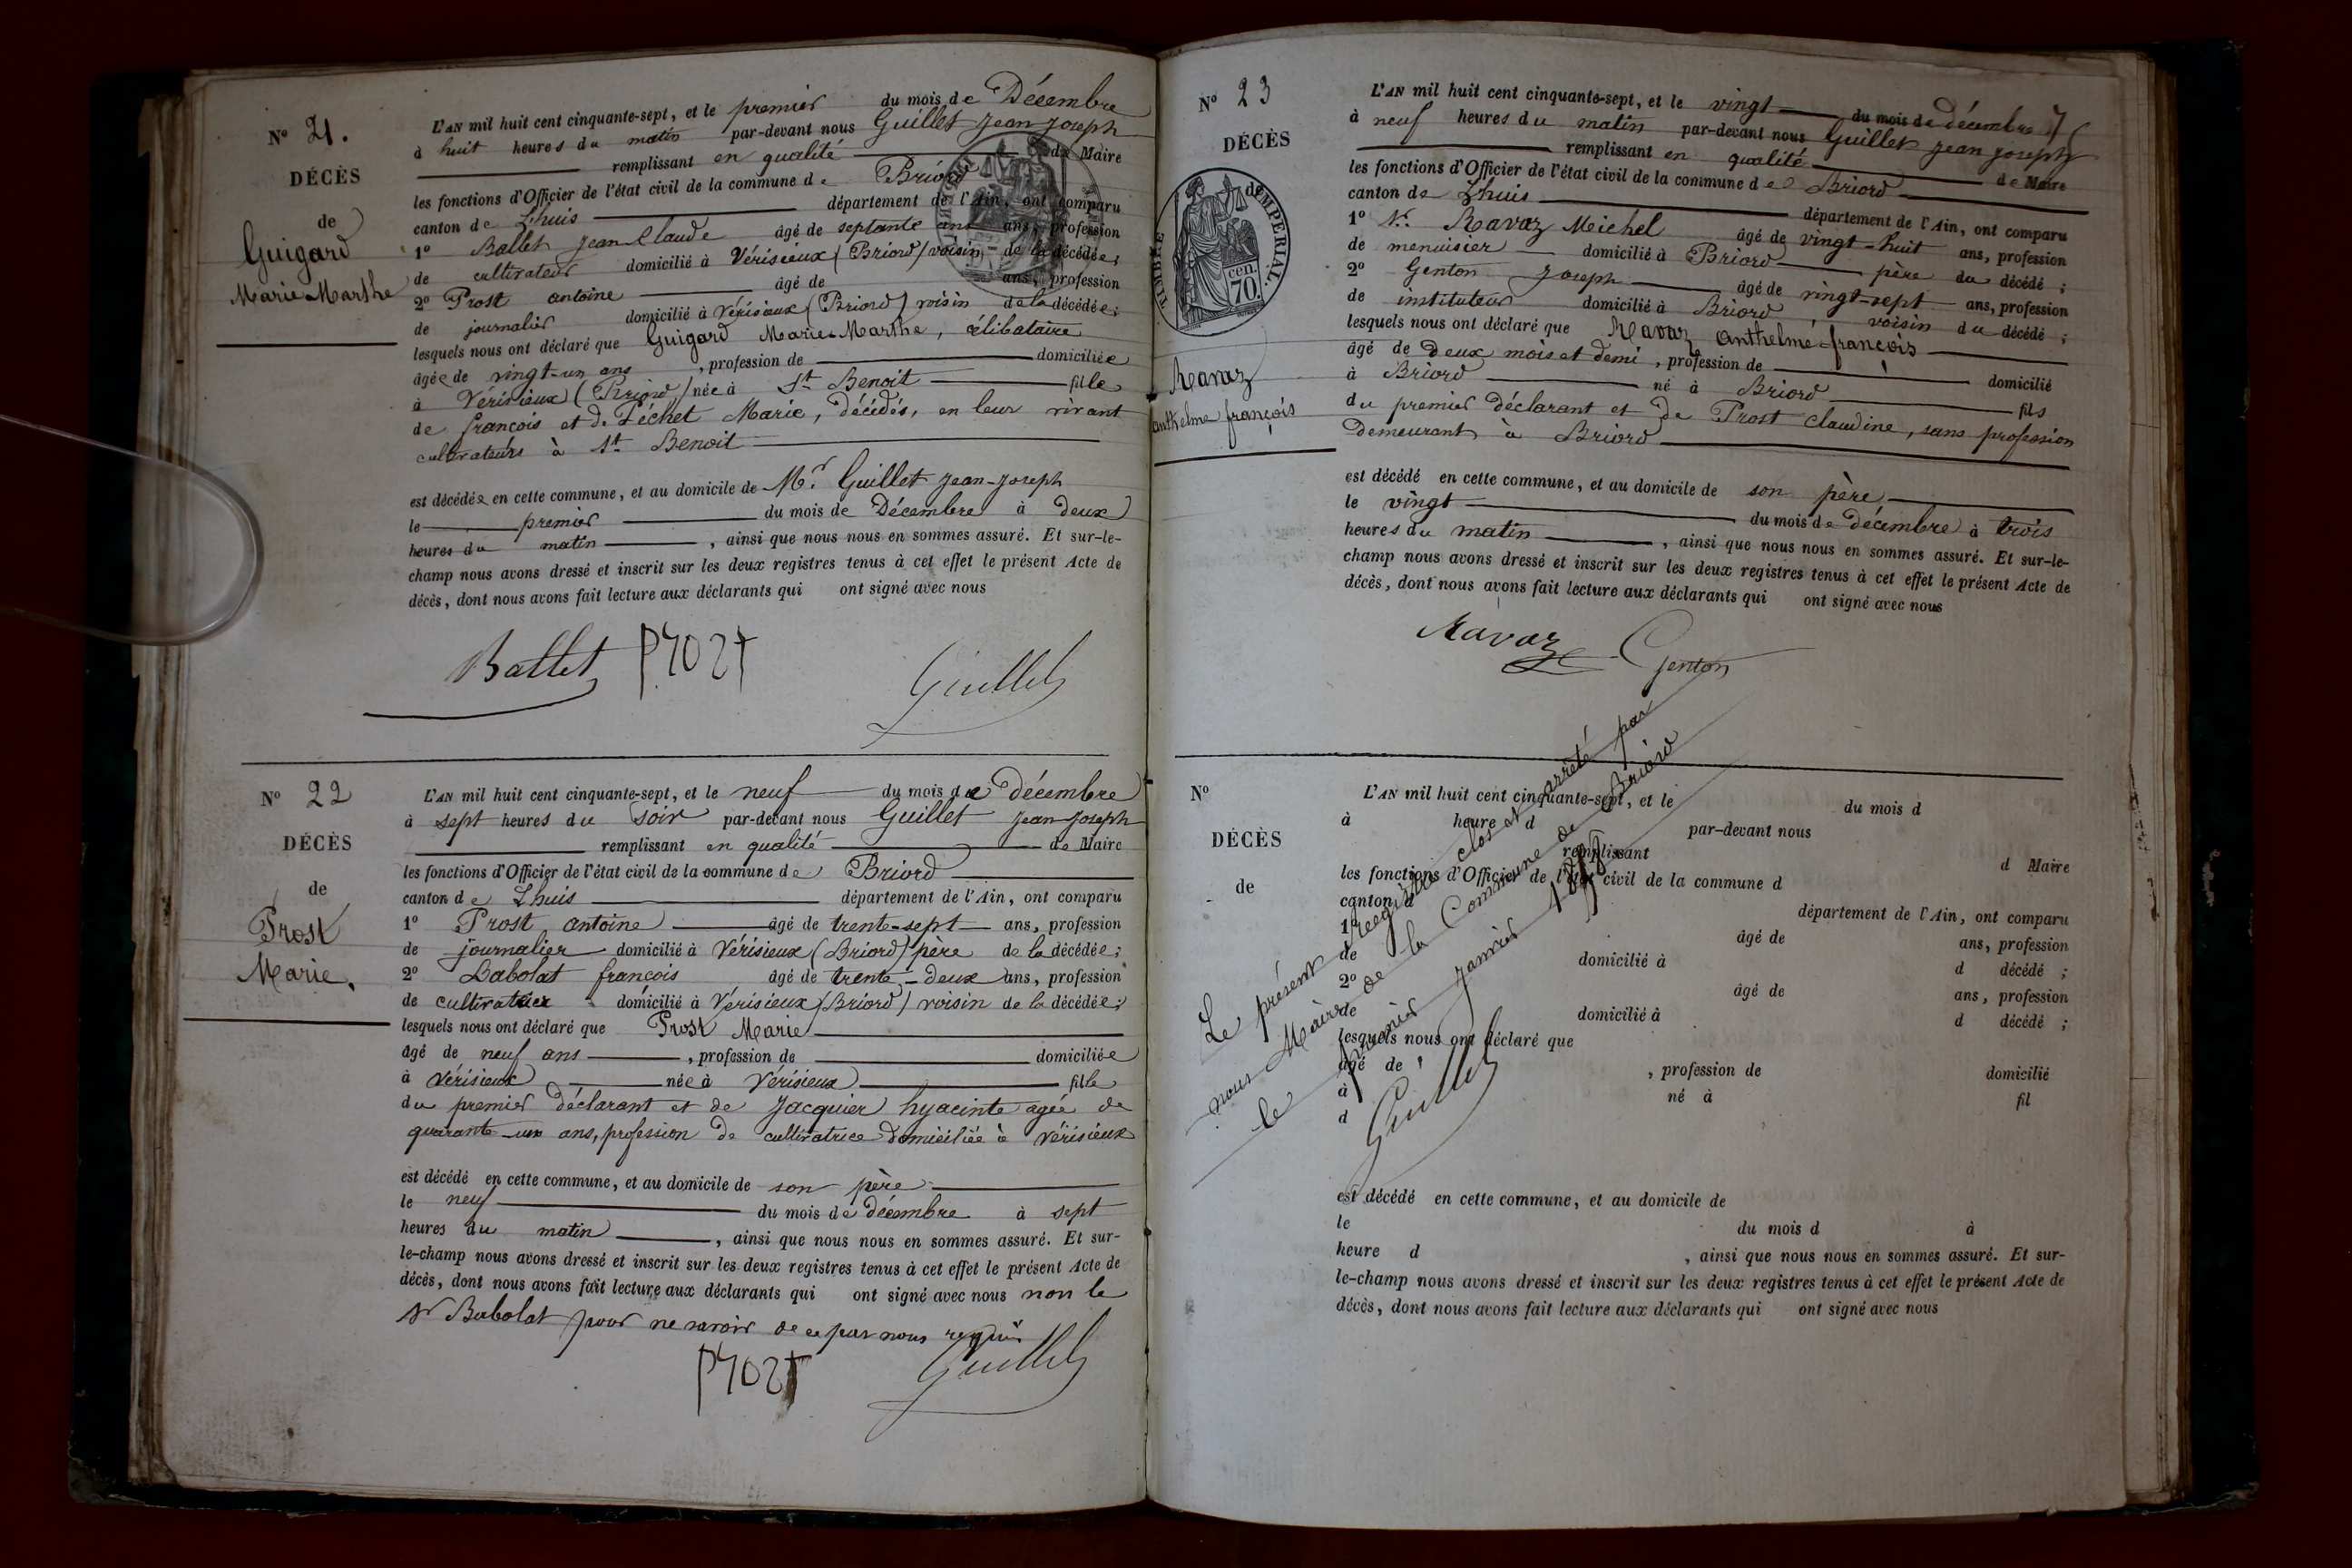 N° 21.
DÉCÈS
de
Guigard
Marie-Marthe
L'AN mil huit cent cinquante-sept, et le premier du mois de Décembre
à huit heures du matin par-devant nous Guillet Jean Joseph
remplissant en qualité de Maire
les fonctions d'Officier de l'état civil de la commune de Briord
canton de Lhuis département de l'Ain, ont comparu
1° Ballet Jean Claude âgé de septante ans ans, profession
de cultivateur domicilié à Vérisieux (Briord) voisin de la décédée;
2° Prost antoine âgé de ans, profession
de journalier domicilié à Vérisieux (Briord) voisin de la décédée;
lesquels nous ont déclaré que Guigard Marie-Marthe, célibataire
âgée de vingt-un ans, profession de domiciliée
à Vérisieux (Briord) née à St Benoit fille
de françois et de Féchet Marie, décédés, en leur vivant
cultivateurs à St Benoit
est décédée en cette commune, et au domicile de Mr. Guillet Jean-Joseph
le premier du mois de Décembre à deux
heures du matin, ainsi que nous nous en sommes assuré. Et sur-le-
champ nous avons dressé et inscrit sur les deux registres tenus à cet effet le présent Acte de
décès, dont nous avons fait lecture aux déclarants qui ont signé avec nous
Ballet Guillet
N° 22
DÉCÈS
de
Prost
Marie.
L'AN mil huit cent cinquante-sept, et le neuf du mois de Décembre
à sept heures du soir par-devant nous Guillet Jean Joseph
remplissant en qualité de Maire
les fonctions d'Officier de l'état civil de la commune de Briord
canton de Lhuis département de l'Ain, ont comparu
1° Prost antoine âgé de trente-sept ans, profession
de journalier domicilié à Vérisieux (Briord) père de la décédée;
2° Babolat françois âgé de trente-deux ans, profession
de cultivateur domicilié à Vérisieux (Briord) voisin de la décédée;
lesquels nous ont déclaré que Prost Marie
âgé de neuf ans, profession de domiciliée
à Vérisieux née à Vérisieux fille
du premier déclarant et de Jacquier hyacinte agée de
quarante-un ans, profession de cultivatrice domiciliée à Vérisieux
est décédé en cette commune, et au domicile de son père
le neuf du mois de décembre à sept
heures du matin, ainsi que nous nous en sommes assuré. Et sur-
le-champ nous avons dressé et inscrit sur les deux registres tenus à cet effet le présent Acte de
décès, dont nous avons fait lecture aux déclarants qui ont signé avec nous non le
Sr Babolat pour ne savoir de ce par nous requis
Guillet
N° 23
DÉCÈS
de
TIMBRE IMPÉRIAL.
70. cen.
Ravaz
anthelme françois
L'AN mil huit cent cinquante-sept, et le vingt du mois de décembre
à neuf heures du matin par-devant nous Guillet Jean Joseph
remplissant en qualité de Maire
les fonctions d'Officier de l'état civil de la commune de Briord
canton de Lhuis département de l'Ain, ont comparu
1° Sr. Ravaz Meichel âgé de vingt-huit ans, profession
de menuisier domicilié à Briord père du décédé;
2° Genton Joseph âgé de vingt-sept ans, profession
de instituteur domicilié à Briord, voisin du décédé;
lesquels nous ont déclaré que Ravaz anthelme-françois
âgé de deux mois et demi, profession de domicilié
à Briord né à Briord fils
du premier déclarant et de Prost claudine, sans profession
demeurant à Briord
est décédé en cette commune, et au domicile de son père
le vingt du mois de décembre à trois
heures du matin, ainsi que nous nous en sommes assuré. Et sur-le-
champ nous avons dressé et inscrit sur les deux registres tenus à cet effet le présent Acte de
décès, dont nous avons fait lecture aux déclarants qui ont signé avec nous
Ravaz Genton
N°
DÉCÈS
de
L'AN mil huit cent cinquante-sept, et le du mois d
à heure d par-devant nous
remplissant d Maire
les fonctions d'Officier de l'état civil de la commune d
canton d département de l'Ain, ont comparu
1° âgé de ans, profession
de domicilié à d décédé;
2° âgé de ans, profession
de domicilié à d décédé;
lesquels nous ont déclaré que
âgé de, profession de domicilié
à né à fil
d
est décédé en cette commune, et au domicile de
le du mois d à
heure d, ainsi que nous nous en sommes assuré. Et sur-
le-champ nous avons dressé et inscrit sur les deux registres tenus à cet effet le présent Acte de
décès, dont nous avons fait lecture aux déclarants qui ont signé avec nous
Le présent Registre clos et arrêté par
nous Maire de la Commune de Briord
le premier janvier 1858
Guillet